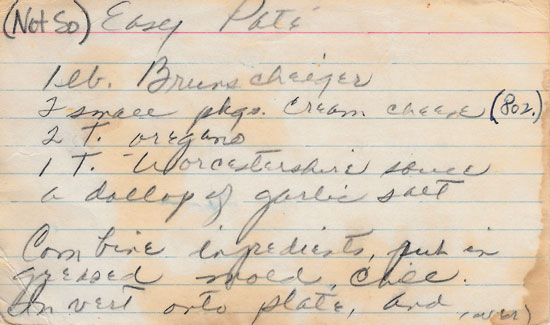 (Not So) Easy Paté
1 lb. Braunscheiger
2 small pkgs. cream cheese (8oz.)
2 T. oregano
1 T. Worcestershire sauce
a dollop of garlic salt
Combine ingredients, put in
greased mold, chill.
Invert onto plate, and
(over)